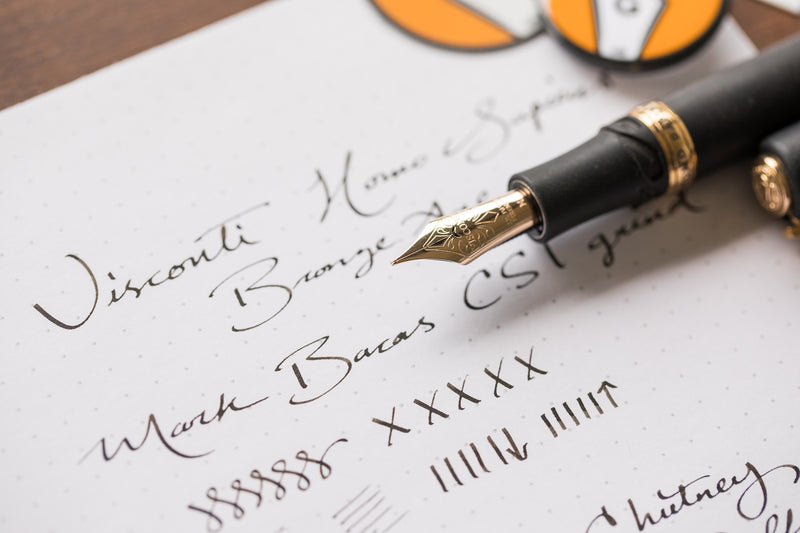 Visconti Homo Sapiens
Bronze Age
Mark Bacas CSI grind
X X X X X
Chutney